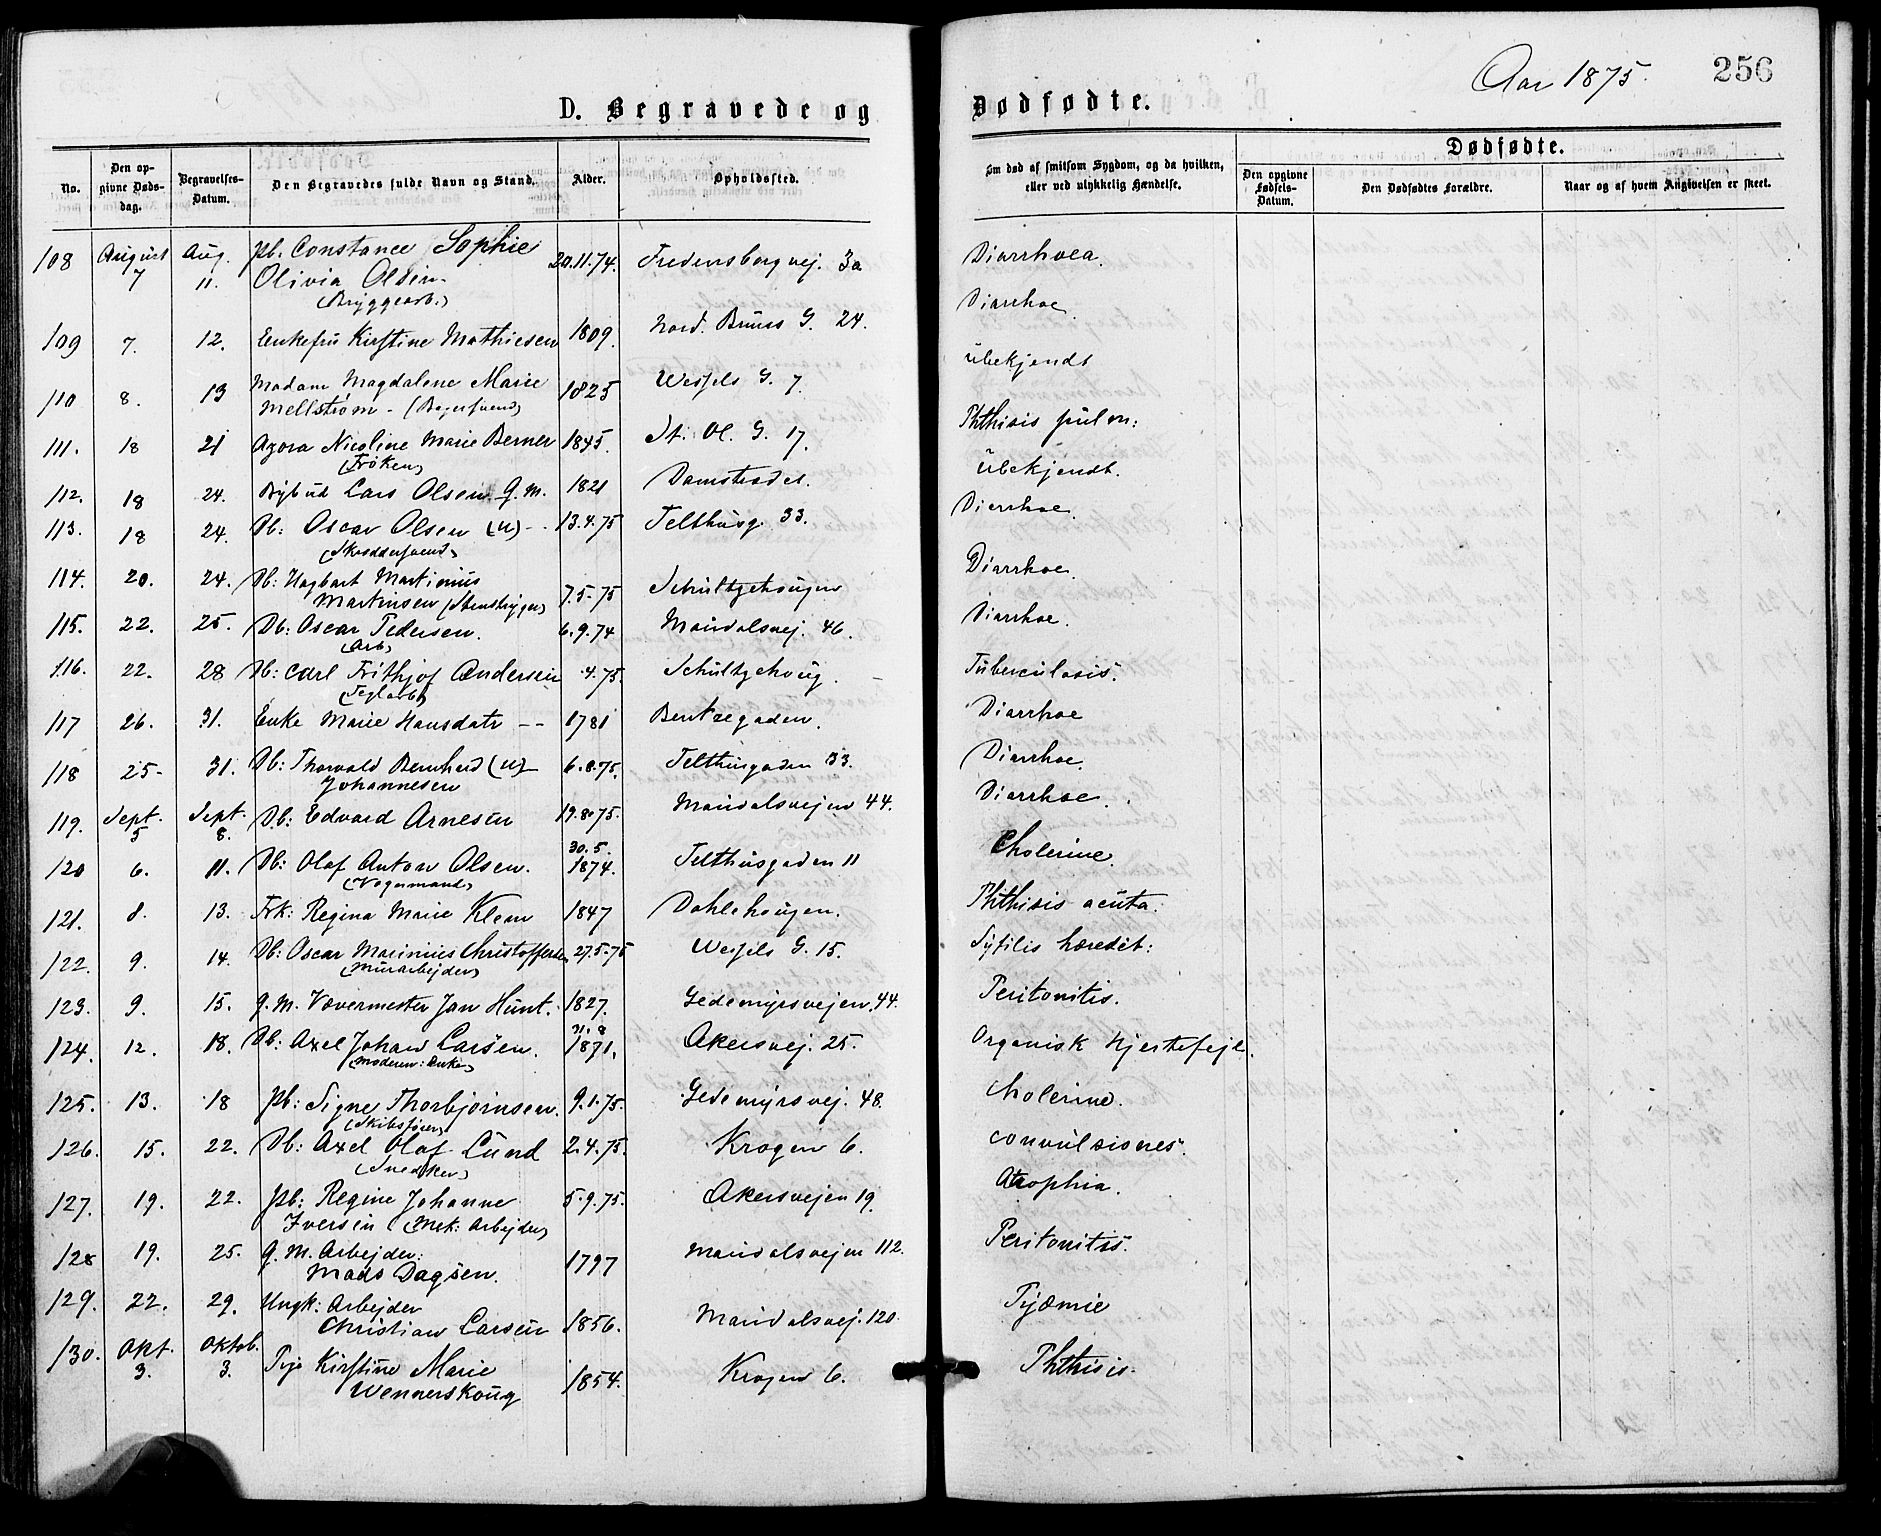 Aar 1875. 256
D. Begravede og Dødfødte.
No. Den opgivne Dødsdag. Begravelses-Datum. Den Begravedes fulde Navn og Stand. Alder. Opholdssted. Om død af smitsom Sygdom, og da hvilken, eller ved ulykkelig Hændelse. Dødfødte. Den opgivne Fødsels-Datum. Den Dødfødtes Forældre. Naar og af hvem Angivelsen er skeet.
108 August 7 Aug. 11. Pb. Constance Sophie 20.11.74. Fredensborgvej. 3a Diarrhoea.
Olivia Olsen
(Bryggearb.)
109 7. 12. Enkefru Kirstine Mathiesen 1809. Nord. Bruns G. 24. Diarrhoe.
110 8. 13 Madam Magdalene Marie 1825 Wessels G. 7. Ubekjendt
Mellstrøm - (Bagersvend)
111. 18 21 Agora Nicoline Marie Berner 1845. St. Ol. G. 17. Phthisis pulm:
(Frøken)
112. 18 24. Bybud Lars Olsen G. M. 1821 Damstrædet. Ubekjendt.
113. 18 24. Db: Oscar Olsen (U) - 13.4.75 Telthusg. 33. Diarrhoe.
(Skræddersvend)
114. 20. 24. Db: Hagbart Martinius 7.5-75 Schultzehougen Diarrhoe.
Martinsen (Stenhugger)
115. 22. 25. Db: Oscar Pedersen. 6.9.74 Maridalsvej. 46. Diarrhoe.
(Arb)
116. 22. 28 Db: Carl Frithjof Andersen .4.75. Schultzehoug. Tuberculosis.
(Teglarb)
117 26. 31. Enke Marie Hansdatr -- 1781 Bentzegaden. Diarrhoe
118 25- 31. Db: Thorvald Bernhard (U)- 6.8.75. Telthusgaden 33. Diarrhoe.
Johannesen
119. Sept. 5 Sept. 8. Db: Edvard Arnesen 19.8.75. Maridalsvejen 44. Diarrhoe.
120 6. 11. Db: Olaf Anton Olsen. 30.5. 1874. Telthusgaden 11 Cholerine.
(Vognmand)
121. 8. 13. Frk: Regina Marie Klem 1847 Dahlehougen. Phthisis acuta.
122. 9. 14. Db: Oscar Marinius Christoffersen 27.5-75 Wessels G. 15. Syfilis hæredit:
(Murarbejder)
123. 9. 15. G. M. Vævermester Jan Hunt. 1827. Gedemyrsvejen. 44. Peritonitis.
124. 12. 18. Db: Axel Johan Larsen. 31.8 1871. Akersvej. 25. Organisk Hjertefejl.
(Moderen: Enke)
125. 13. 18 Pb: Signe Thorbjørnsen. 9.1.75. Gedemyrsvej. 48. Cholerine.
(Skibsfører)
126. 15. 22. Db: Axel Olaf Lund 2.4.75. Krogen 6. Convulsiones.
(Snedker)
127. 19. 22. Pb: Regine Johanne 5.9.75. Akersvejen 19. Atrophia.
Iversen (Mek: Arbejder)
128 19. 25. G. M. Arbejder: 1797 Maridalsvejen 112. Peritonitis.
Mads Dagsen.
129. 22. 29. Ungk: Arbejder 1856. Maridalsvej. 120. Pyæmie
Christian Larsen
130. Okt. 3. Oktob. 3. Pige Kirstine Marie 1854. Krogen 6. Phthisis.
Wennerskoug